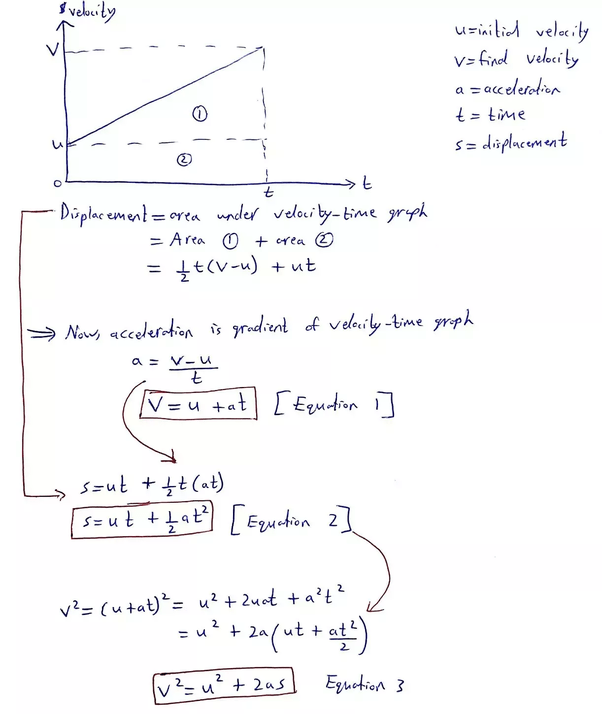 velocity
V
u
0
①
②
t
t
u=initial velocity
v=find velocity
a = acceleration
t = time
s = displacement
Displacement = area under velocity-time graph
= Area ① + area ②
= 1/2 t(v-u) + ut
⇒ Now, acceleration is gradient of velocity-time graph
a = v-u/t
V = u + at [Equation 1]
s=ut + 1/2 t(at)
s=ut + 1/2 at² [Equation 2]
v²=(u+at)²= u²+2uat + a²t²
= u² + 2a(ut + at²/2)
v²=u² + 2as Equation 3